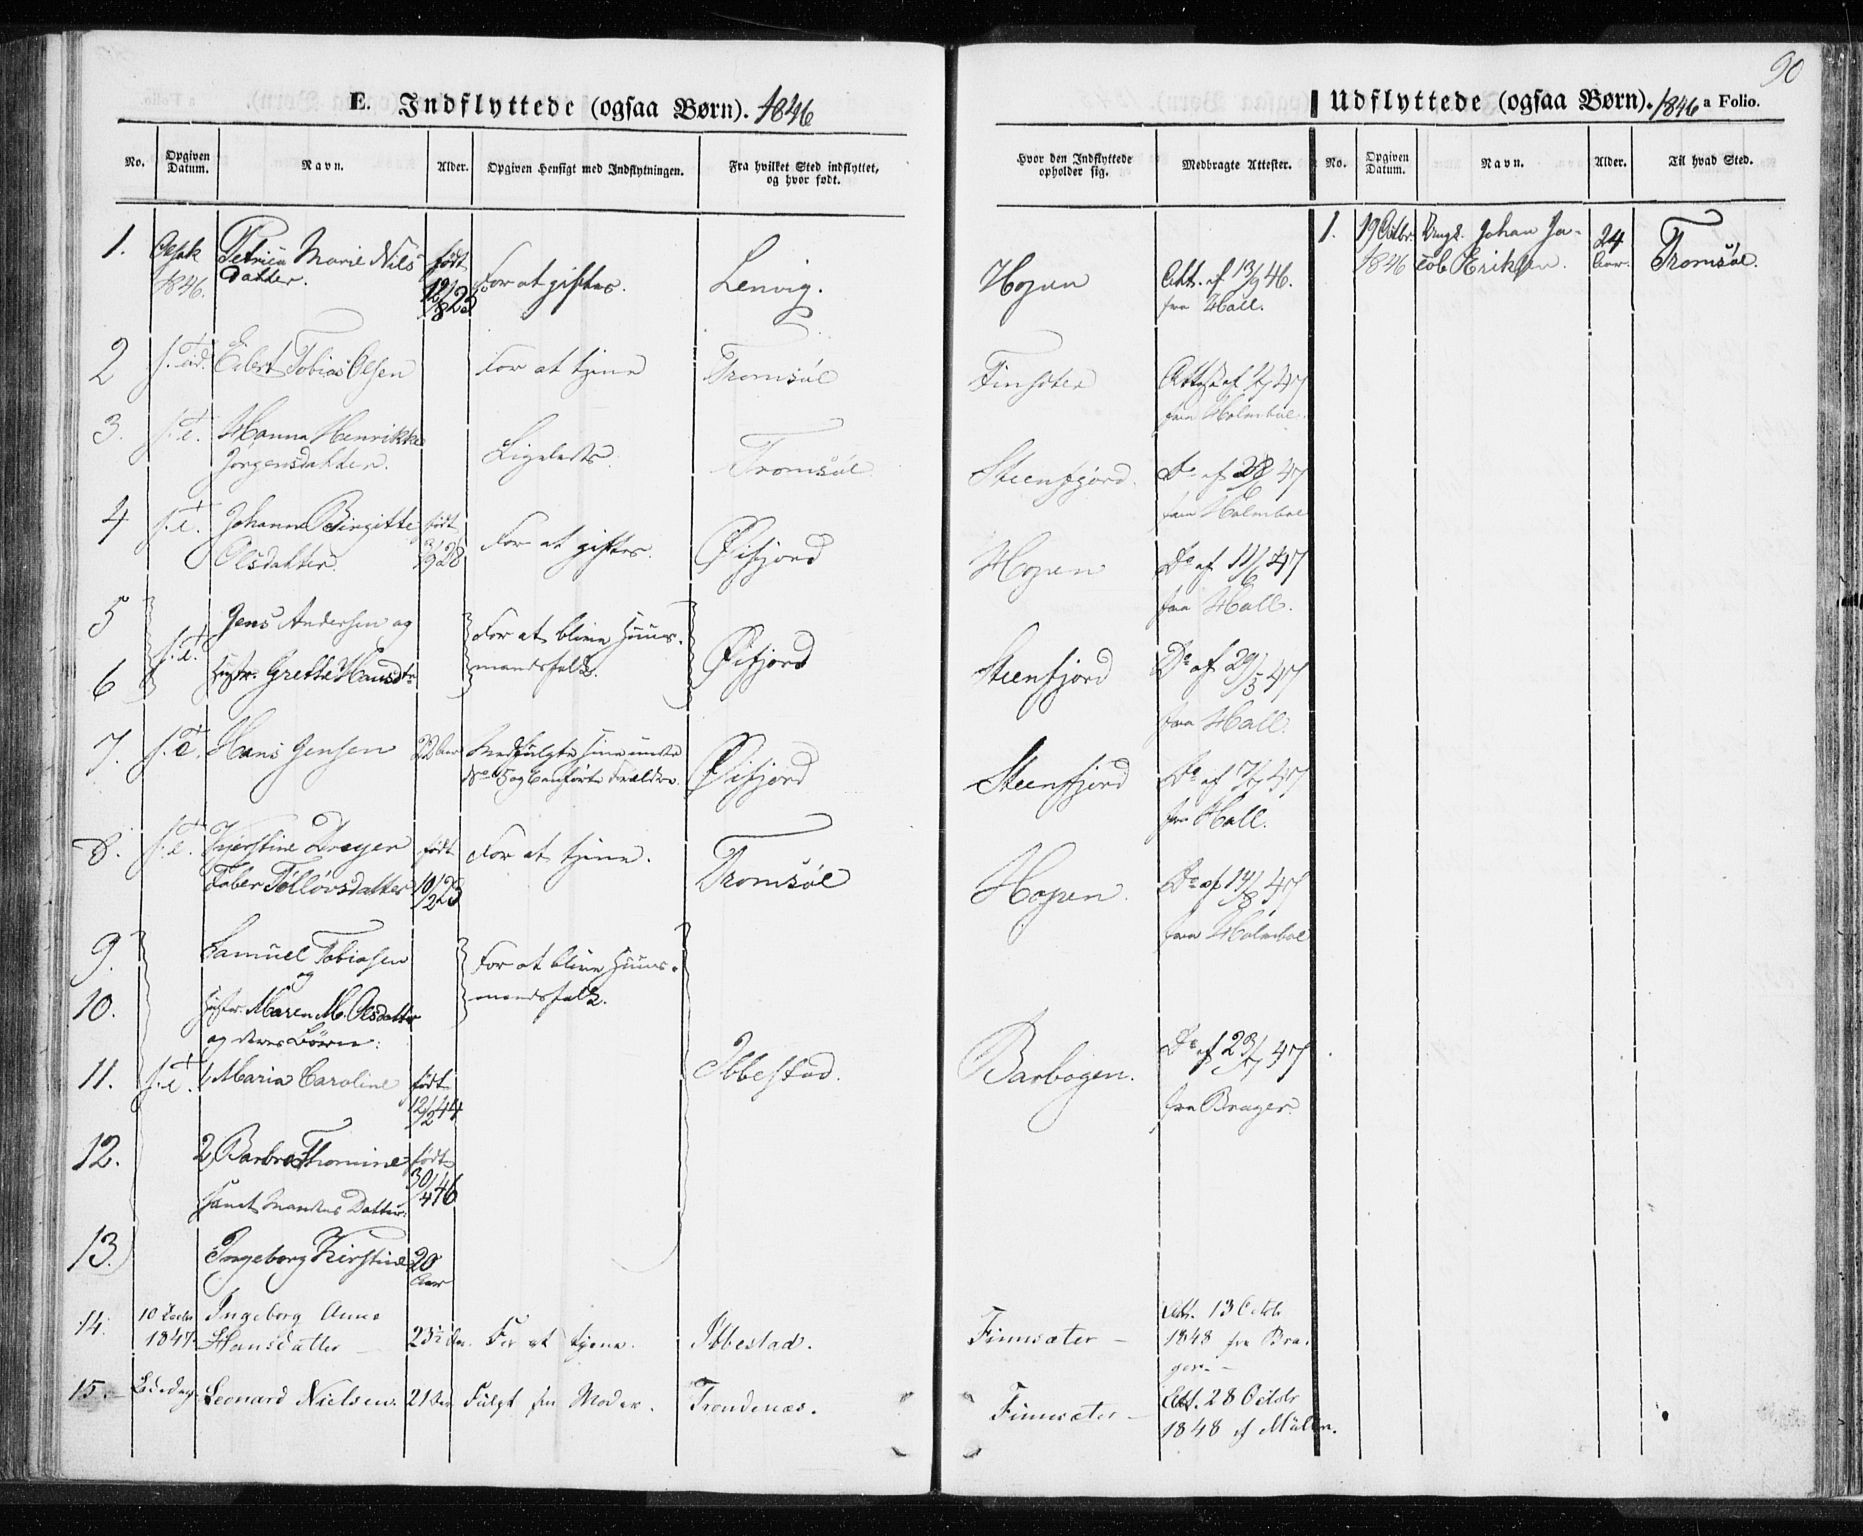 90
E. Indflyttede (ogsaa Børn). 1846
No. Opgiven Datum. Navn. Alder. Opgiven Hensigt med Indflytningen. Fra hvilket Sted indflyttet, og hvor født.
1. 1846. Petrica Marie Nils- født For at giftes. Lenvig.
datter. 12/8 25
2 s. Tid. Eilert Tobias Olsen For at tjene Tromsöe
3. s. T. Hanna Henrikke Ligeledes Tromsöe
Jørgensdatter.
4 s. T. Johanna Birgitte født For at giftes. Øifjord
Olsdatter. 3/9 28
5 Jens Andersen og For at blive Huus-
6 s. T. Hustr. Grethe Hansdtr mandsfolk. Øifjord
7. s. T. Hans Jensen 22 Aar Medfulgte sine under
No 5 og 6 anførte Forældre. Øifjord
8. s. T. Kjerstine Dreyer født For at tjene. Tromsöe
Faber Tølløvsdatter 10/2 23
9. Samuel Tobiasen For at blive Huus-
og mandsfolk.
10. Hustr. Maren M. Olsdatter
og deres Børn:
11. s. T. 1, Maria Caroline født Ibbestad.
12/2 44
12. 2, Barbro Thomine født
30/4 46
samt Mandens Datter:
13. Ingeborg Kirstine 20
Aar
14. 10 Octbr Ingeborg Anne
1847 Hansdatter 23½ Aar. For at tjene. Ibbestad.
15. Leonard Nielsen. 21 Aar Fulgt sin Moder. Trondenæs.
Hvor den Indflyttede opholder sig. Medbragte Attester.
Hopen Att. af 13/9 46.
fra Hall.
Finsæter Attest af 47
fra Holmboe.
Steenfjord. Do af 47
fra Holmboe
Hopen Do af 11/6 47
fra Hall.
Steenfjord Do af 29/5 47
fra Hall.
Steenfjord Do af 47
fra Hall.
Hopen. Do af 14/8 47
fra Holmboe
Barbogen. Do af 23/7 47
fra Brager.
Finnsæter – Att. 13 Octbr
1848 fra Bra-
ger. –
Finnsæter – Att. 28 Octobr
1848 af Müller.
Udflyttede (ogsaa Børn). 1846 a Folio.
No. Opgiven Datum. Navn. Alder. Til hvad Sted.
1. 19 Octbr. Ungk. Johan Ja- 24 Tromsöe.
1846 cob Eriksen. Aar.